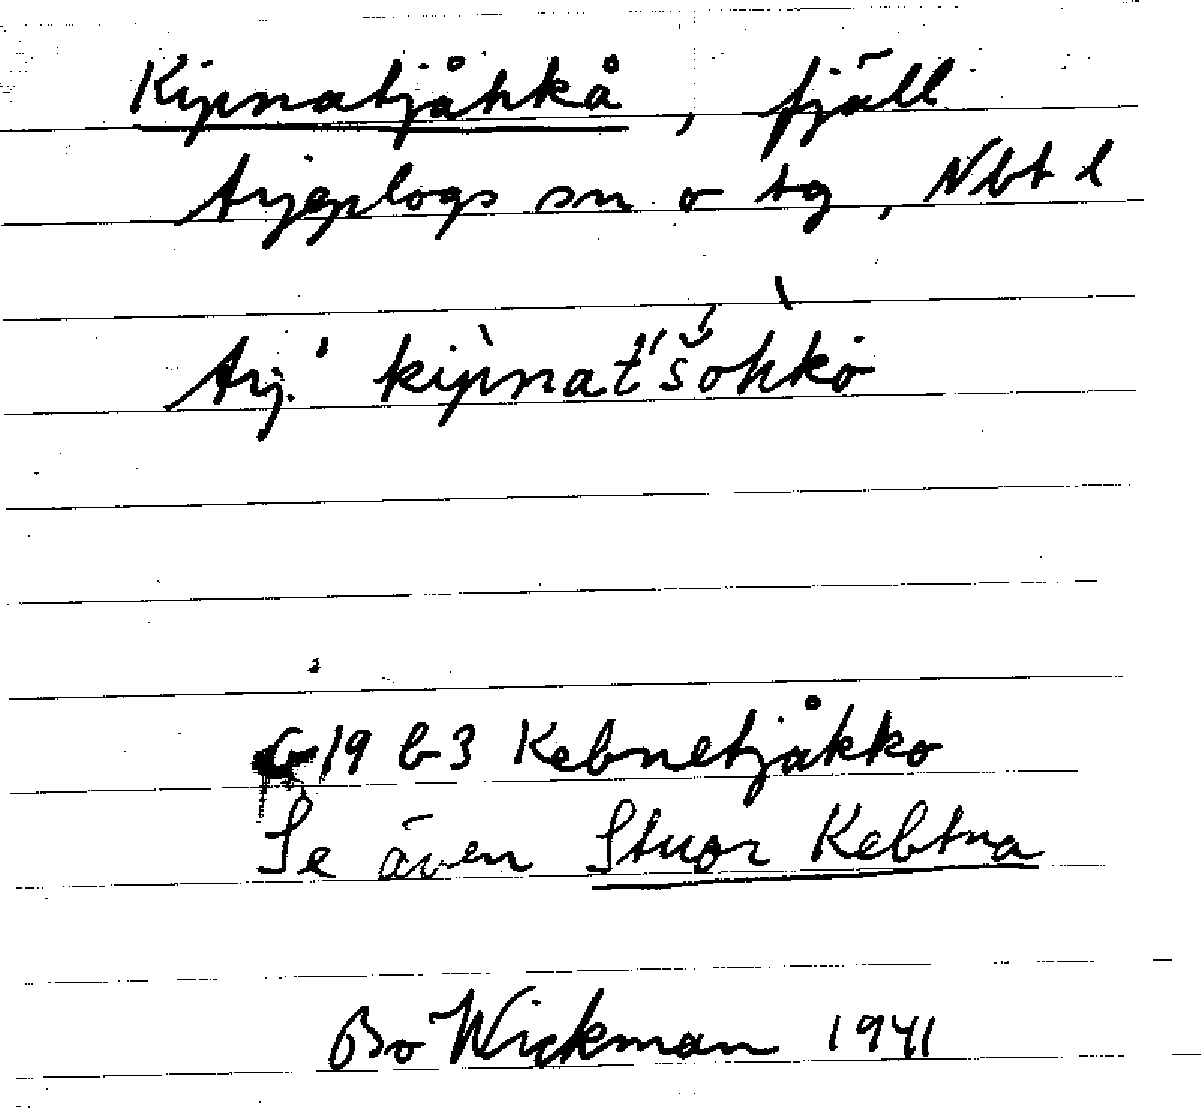 Kipnatjåhkå, fjäll
Arjeplogs sn o tg, Nbt l
Arj. kìpnat́'šohkò
G 19 b 3 Kebnetjåkko
Se även Stuor Kebtna
Bo Wickman 1941